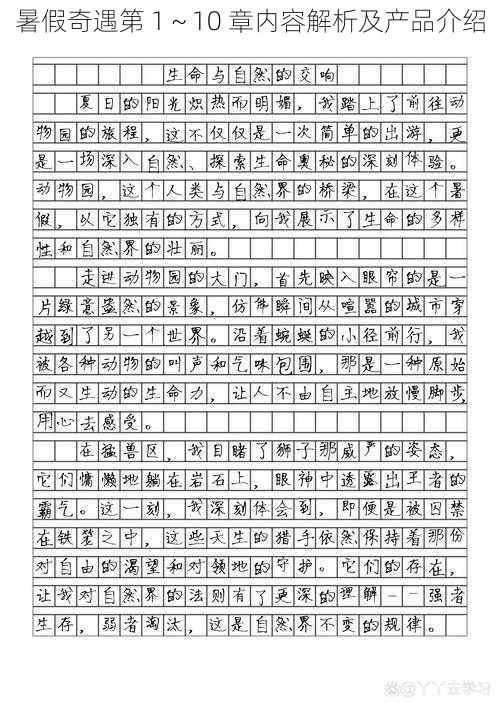 暑假奇遇第 1～10 章内容解析及产品介绍
生命与自然的交响
夏日的阳光炽热而明媚，我踏上了前往动
物园的旅程，这不仅仅是一次简单的出游，更
是一场深入自然、探索生命奥秘的深刻体验。
动物园，这个人类与自然界的桥梁，在这个暑
假，以它独有的方式，向我展示了生命的多样
性和自然界的壮丽。
走进动物园的大门，首先映入眼帘的是一
片绿意盎然的景象，仿佛瞬间从喧嚣的城市穿
越到了另一个世界。沿着蜿蜒的小径前行，我
被各种动物的叫声和气味包围，那是一种原始
而又生动的生命力，让人不由自主地放慢脚步，
用心去感受。
在猛兽区，我目睹了狮子那威严的姿态，
它们慵懒地躺在岩石上，眼神中透露出王者的
霸气。这一刻，我深刻体会到，即便是被囚禁
在铁笼之中，这些天生的猎手依然保持着那份
对自由的渴望和对领地的守护。它们的存在，
让我对自然界的法则有了更深的理解——强者
生存，弱者淘汰，这是自然界不变的规律。
@丫丫去学习